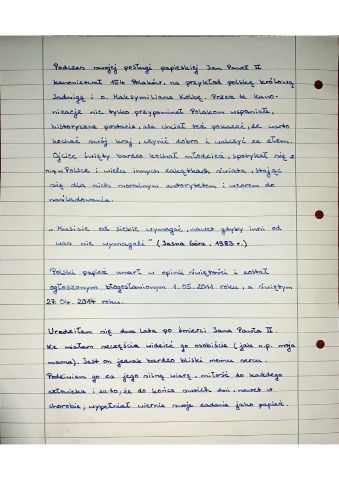 Podczas swojej posługi papieskiej Jan Paweł II
kanonizował Polaków, na przykład polską królową
Jadwigę i o. Maksymiliana Kolbę. Przez te kano-
nizacje nie tylko przypominał Polakom wspaniałe,
historyczne postacie, ale chciał też pokazać, że warto
kochać swój kraj, czynić dobro i walczyć ze złem.
Ojciec święty bardzo kochał młodzież, spotykał się z
nią w Polsce i wielu innych zakątkach świata, stając
się dla nich moralnym autorytetem i wzorem do
naśladowania.
„Musicie od siebie wymagać, nawet gdyby inni od
was nie wymagali" (Jasna Góra, 1983 r.)
Polski papież umarł w opinii świętości i został
ogłoszonym błogosławionym 1.05.2011 roku, a świętym
27.04.2014 roku.
Urodziłam się dwa lata po śmierci Jana Pawła II.
Nie miałam szczęścia widzieć go osobiście (jak n.p. moja
mama). Jest on jednak bardzo bliski memu sercu.
Podziwiam go za jego silną wiarę, miłość do każdego
człowieka i za to, że do końca swoich dni, nawet w
chorobie, wypełniał wiernie swoje zadanie jako papież.